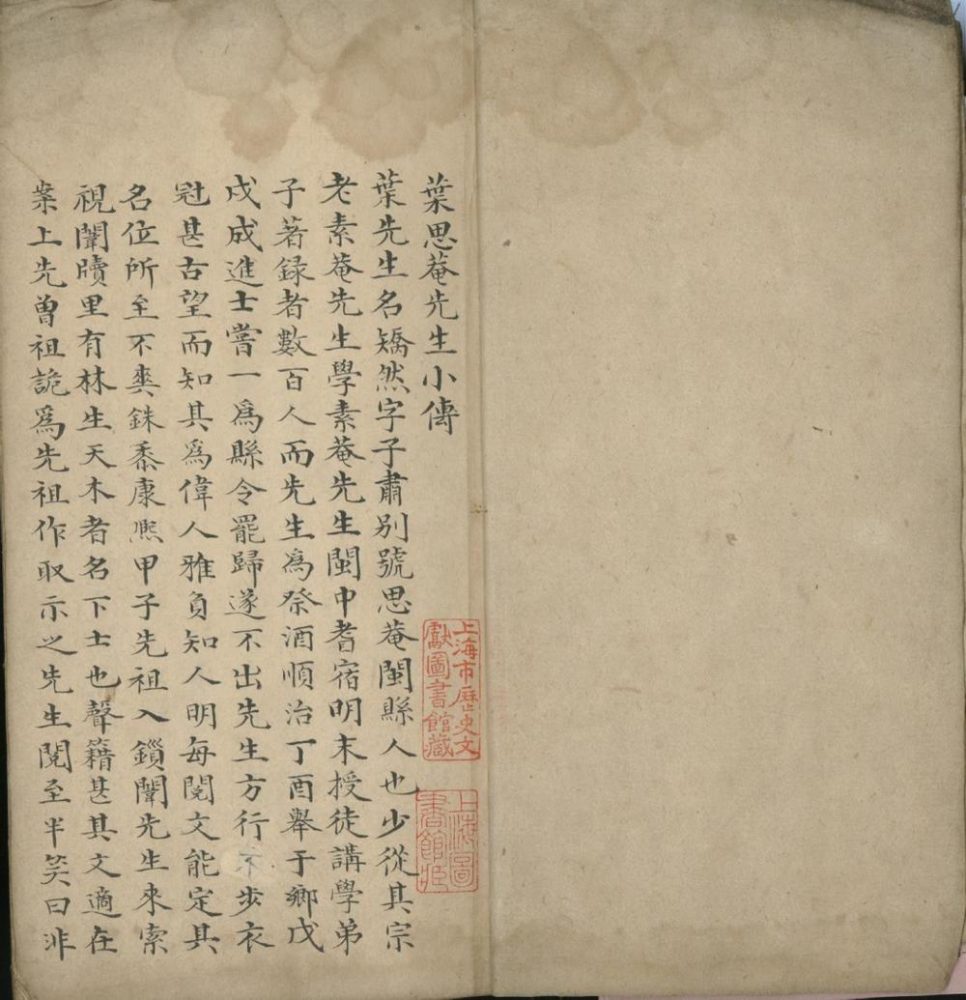 葉思菴先生小傳
葉先生名矯然字子肅別號思菴閩縣人也少從其宗
老素菴先生學素菴先生閩中耆宿明末授徒講學弟
子著録者數百人而先生爲祭酒順治丁酉舉于鄉戊
戌成進士嘗一爲縣令罷歸遂不出先生方行不步衣
冠甚古望而知其爲偉人雅負知人明每閱文能定其
名位所至不爽銖黍康熈甲子先祖入鎖闈先生來索
視闈牘里有林生天木者名下士也聲籍甚其文適在
案上先曾祖詭爲先祖作取示之先生閱至半笑曰非
上海市歷史文
獻圖書館藏
上海圖
書館藏